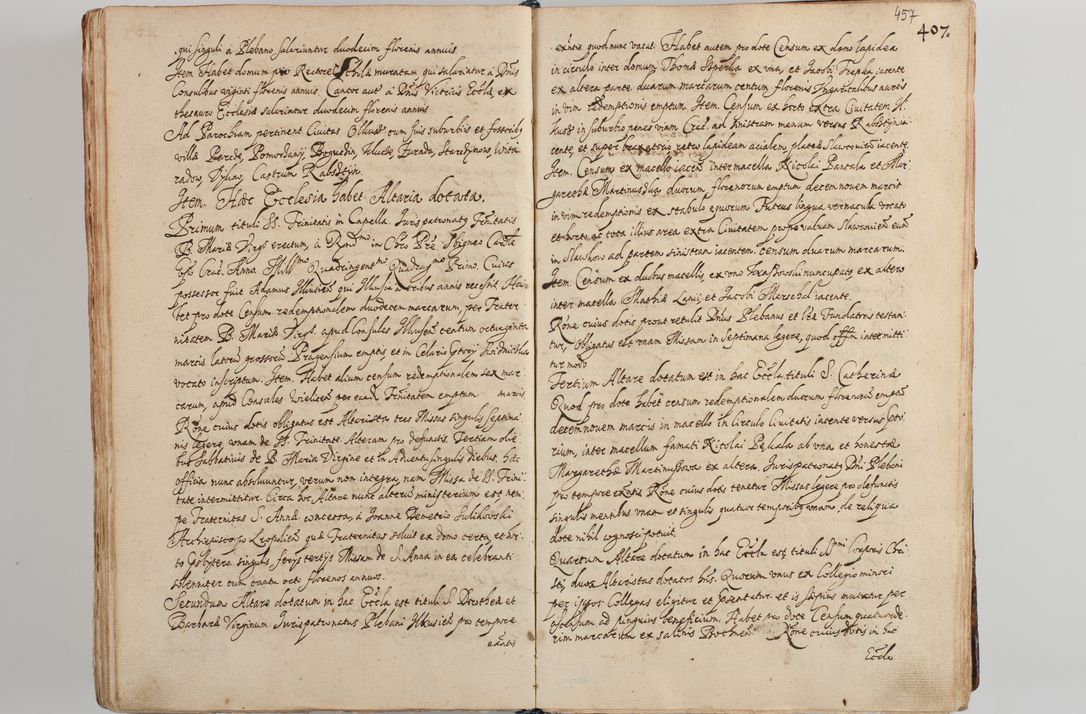 qui singuli à Plebano salariuntur duodecim florenis annuis.
Item Habet domum pro Rectore Scholæ muratam, qui salariatur à Dnis
Consulibus viginti florenis annuis. Cantor aut à Dnis Vitricis Ecclæ ex
thesauro Ecclesiæ salariatur duodecim florenis annuis
Ad Parochiam pertinent Ciuitas Ilkus cum suis suburbiis et
villæ Parcze, Pomorzany, Boguchin, Zurada, Starczynow, Wita
radow, Castrum Rabsztin.
Item. Hæc Ecclesia habet Altaria dotata.
Primum tituli SS. Trinitatis in Capella. Iurispatronatus
B. Mariæ Virgs erectum, à Rndmo in Chro Pre. Sbigneo Cardle
Epo Crac. Anno Millmo Quadringentmo Quadrag. Primo. Cuius
possessor fuit Adamus Ilkusien qui annis recessit. Ha
bet pro dote Censum redemptionalem duodecem marcarum, per Frater
nitatem B. Mariæ Virgs. apud Consules Ilkusien centum octuaginta
marcis latorum grossorum Pragensium emptis, et in
vocato inscriptum. Item. Habet alium censum redemptionalem sex mar
carum, apud Consules per eand. emptum marcis
Rone cuius dotis obligatus est Altarista tres Missas singulis septima
nis legere vnam de SS. Trinitate. Alteram pro defunctis. Tertiam die
bus Sabbativis de B. Maria Virgine et in Aduentu singulis diebus. hæc
officia nunc absoluuntur, verum non integra, nam Missa de SS. Trini
tate intermittitur. Circa hoc Altare nunc alterius ministerium est nem
pe Fraternitas S. Annæ concessa, à Ioanne Demetrio Sulikowski
Archiepiscopo Leopolien quæ Fraternitas soluit ex domo certa
to Presbytero singulis ferys tertys Missam de S. Anna in ea celebranti
solenniter cum cantu octo florenos annuos.
Secundum Altare dotatum in hac Eccla est tituli S. Dorotheæ et
Barbaræ Virginum. Iurispatronatus Plebani Ilkusien pro tempore
exntis
457
407.
exntis, quod nunc vacat. Habet autem pro dote Censum ex domo lapidea
in circulo inter domum Thomæ ex vna, et Iacobi Trepka iacente
ex altera parte duarum marcarum centum florenis Vngaricalibus aureis
in vim redemptionis emptum. Item. Censum ex horto extra Ciuitatem Il
kus in suburbio penes viam Crac. ad sinistram manum versus Rabsztyn ia
cente, et super retro lapideam acialem plateæ Slavconien iacente.
Item. Censum ex macello iacen inter macella Nicolai Pancala et Mar
garethæ Martinus duorum florenorum emptum decem nouem marcis
in vim redemptionis ex stabulo equorum. Puteus lingua vernacula vocato
et horto et tota illius area extra Ciuitatem prope valuam Slawconien
in Slawkow ad partem sinistram iacentem. censum duarum marcarum.
Item. Censum ex duobus macellis, ex vno nuncupato, ex altero
inter macella Mathiæ Lani, et Iacobi Morschal iacente.
Rone cuius dotis prout retulit Dnus Plebanus et Fundationis testan
tur, obligatus est vnam Missam in septimana legere, quod offm intermitti
tur modo
Tertium Altare dotatum est in hac Eccla tituli S. Catherinæ
Quod pro dote habet censum redemptionalem duorum florenorum emptum
decemnouem marcis in macello in Circulo Ciuitatis iacente versus
rium, inter macellum famati Nicolai ab vna, et honestæ
Margarethæ ex altera. Iurispatronatus Dni Plebani
pro tempore exntis. Rone cuius dotis tenetur Missas legere pro defunctis
singulis mensibus vnam et singulis quatuor temporibus vnam, de reliqua
dote nihil cognosci potuit.
Quartum Altare dotatum in hac Eccla est tituli SSmi Corporis Chri
sti, duos Altaristas dotatos hns. Quorum vnus ex Collegio minori
per ipsos Collegas eligitur et præntatur, et is sæpius mutatur per
ascensum ad pinguius beneficium. Habet pro dote Censum quatuorde
cim marcarum ex salinis Bochnen Rone cuius dotis in hac
Eccla